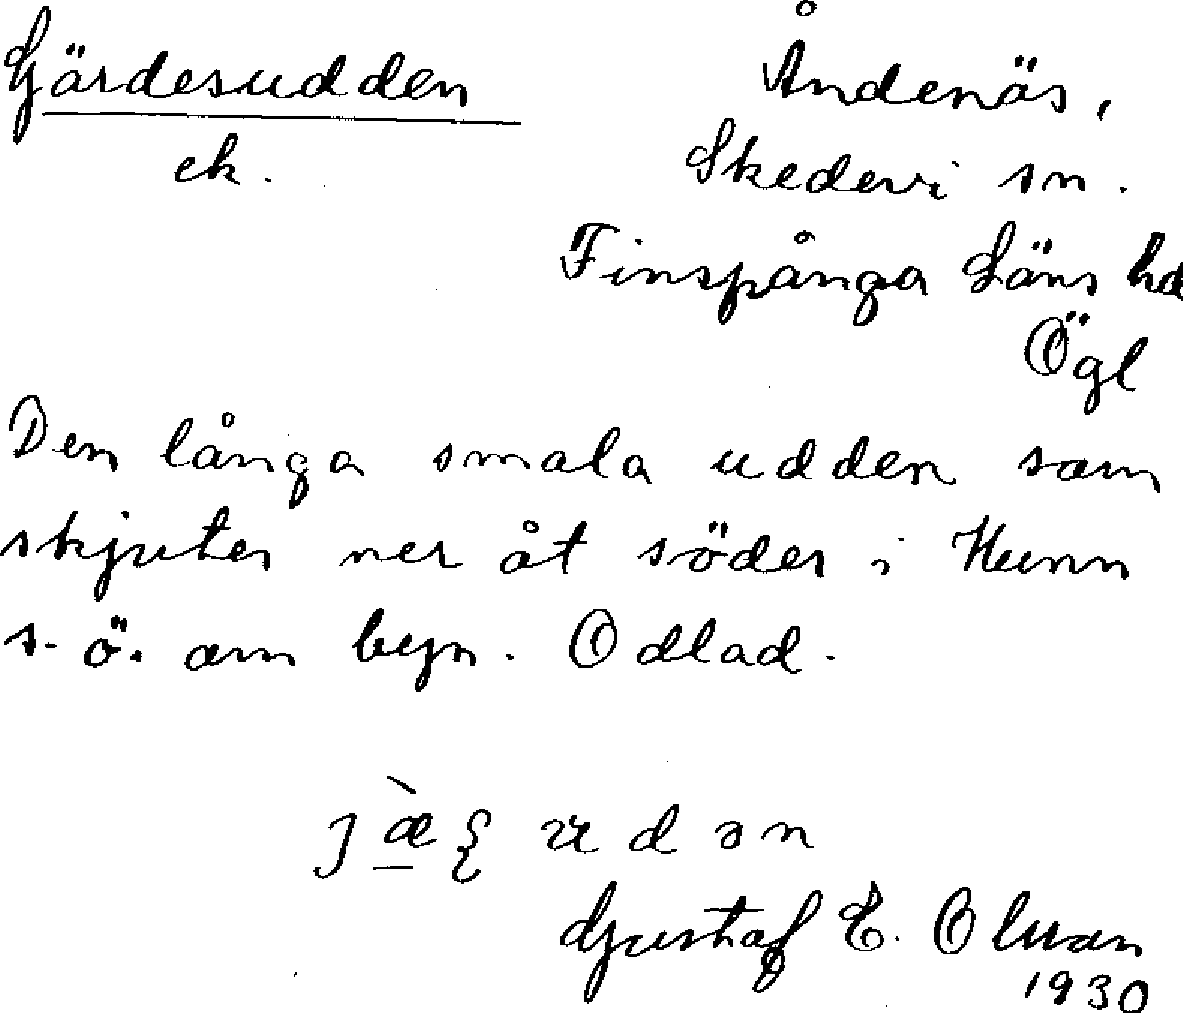 Gärdesudden
ek.
Åndenäs,
Skedevi sn.
Finspånga Läns hd
Ögl
Den långa smala udden som
skjuter ner åt söder i Hunn
s.ö. om byn. Odlad.
Gustaf E. Olsson
1930